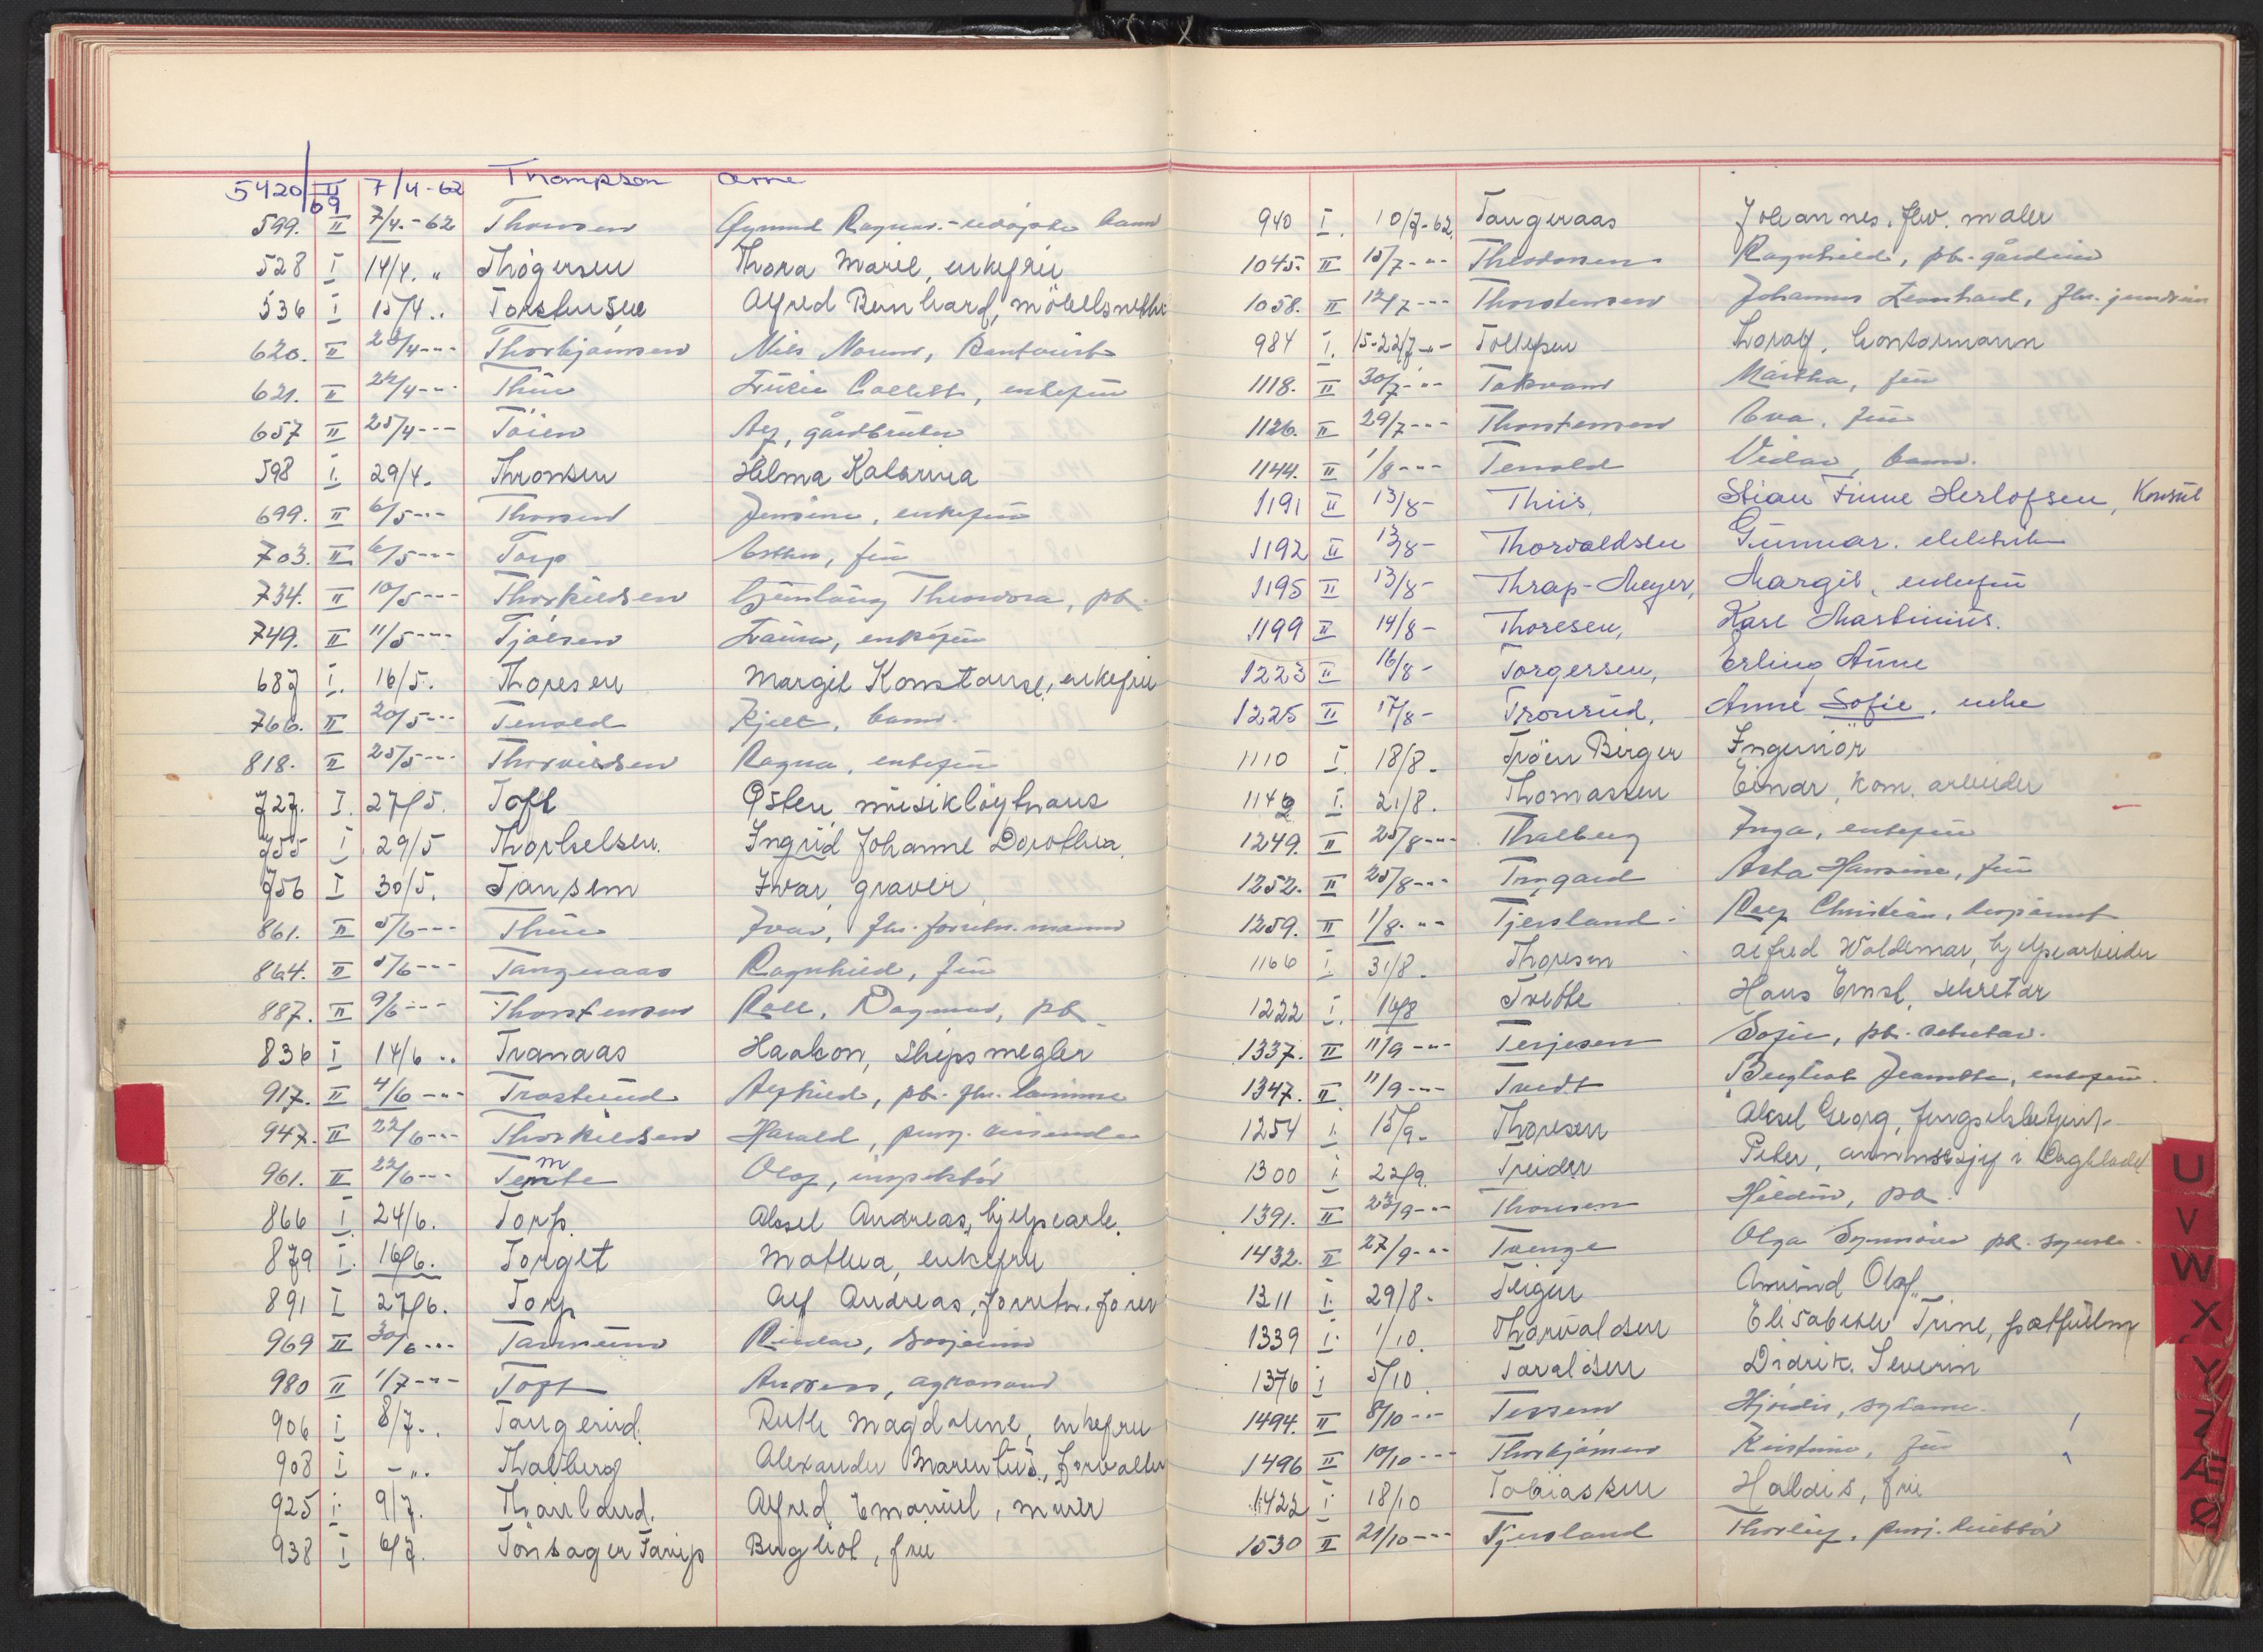 5420/69 II 7/4-62 Thompson Arne
599. II 7/4.-62 Thomsen Øymund Ragnar.-udøpte barn
528 I 14/4. " Thøgersen Thora Marie, enkefru
536 I 15/4.. Torstensen Alfred Bernhard, möbelsnekker
620. II 23/4--- Thorbjørnsen Nils
621. II 24/4--- Thüe Collett, enkefrü
657 II 25/4--- Töien gårdbrüker
598 I. 29/4. Thronsen Helma Katarina
699. II 6/5--- Thorsen Jensine, enkefrü
703. II 6/5--- Torp Esther, frü
734. II 10/5--- Thorkildsen Günlaüg Theodora, pb.
749. II 11/5--- Tjølsen Laura, enkefrü
687 I. 16/5. Thoresen Margit Konstanse, enkefru
766. II 20/5--- Tenold Kjell, barn.
818. II 25/5--- Thorvildsen Ragna, enkefrü
727. I. 27/5. Toft Østen musikløytnant
755 I. 29/5 Thorkelsen. Ingrid Johanne Dorothea.
756 I 30/5. Tansem Ivar, gravør
861. II 5/6--- Thüe Ivar, fhv. forretn. mann
864. II 5/6--- Tangeraas Ragnhild, frü
887. II 9/6--- Thorstensen Dagmar, pb.
836 I 14/6 .. Tranaas Haakon, skipsmegler
917. II 4/6--- Trosterud pb. fhv.
947. II 22/6--- Thorkildsen Harald, pensj.
961. II 22/6--- Temte m Olaf, inspektör
866 I. 24/6. Torp. Aksel Andreas, hjelpearb.
879 I. 16/6. Torget Mathea, enkefru
891 I 27/6. Torp Alf Andreas, forretn. fører
969 II 30/6 --- Reidar,
980 II 1/7--- Toft Anders, agronom
906 I 8/7.. Tangerud. Ruth Magdalene, enkefru
908 I -". Thalberg Alexander Marentius, forvalter
925 I. 9/7. Thauland. Alfred Emanuel, murer
938 I 6/7. Tönsager Farup Bergliot, frue
940 I. 10/7-62. Tangeraas Johannes. fhv. maler
1045. II 15/7--- Theodorsen Ragnhild, pb.
1058. II 12/7--- Thorstensen Johannes Leonhard, fhv.
984 I. 15-22/7--- Tollefsen Thoralf, kontormann
1118. II 30/7--- Takvam Martha, frü
1126. II 29/7--- Thorstensen Eva, frü
1144. II 1/8--- Tenold Vidar, barn.
1191 II 13/8- Thiis, Stian Finne Herlofsen, Konsul
1192 II 13/8- Thorvaldsen Günnar.
1195 II 13/8- Thrap-Meyer, Margit, enkefrü
1199 II 14/8- Thoresen, Karl Martinius.
1223 II 16/8- Torgersen, Erling Arne
1225 II 17/8- Tronrud, Anne Sofie. enke
1110 I. 18/8. Tröen Birger Ingeniör
1142 I. 21/8. Thomassen Einar, kom. arbeider
1249. II 25/8--- Thalberg Inga, enkefrü
1252. II 25/8--- Tangard Asta Hansine, frü
1259. II 1/8.-- Tjersland Christian, disponent
1166 I 31/8. Thoresen Alfred Waldemar, hjelpearbeider
1222 I. 14/8 Tvette Hans Ernst, sekretær
1337. II 11/9--- Terjesen Sofie, pb.
1347. II 11/9--- Tvedt Bergliot Jeanette, enkefrü.
1254 I. 15/9. Thoresen Aksel Georg, fengselsbetjent.
1300 I. 22/9. Treider Peter, annonsesjef i Dagbladet
1391. II 23/9--- Thomsen pb.
1432. II 27/9--- Tvenge Olga pb.
1311 I. 29/8. Teigen Amund Olaf
1339 I. 1/10. Thorvaldsen Elisabeth Trine, postfullm
1376 I 5/10. Taraldsen Didrik. Severin
1494. II 8/10--- Hjørdis, sydame.
1496 II 10/10--- Thorbjørnsen Kristine, frü
1422 I. 18/10 Tobiassen Haldis, frue
1530 II 21/10--- Tjersland Thorleif, pensj. lektör
U
V
W
X
Y
Z
Æ
Ø